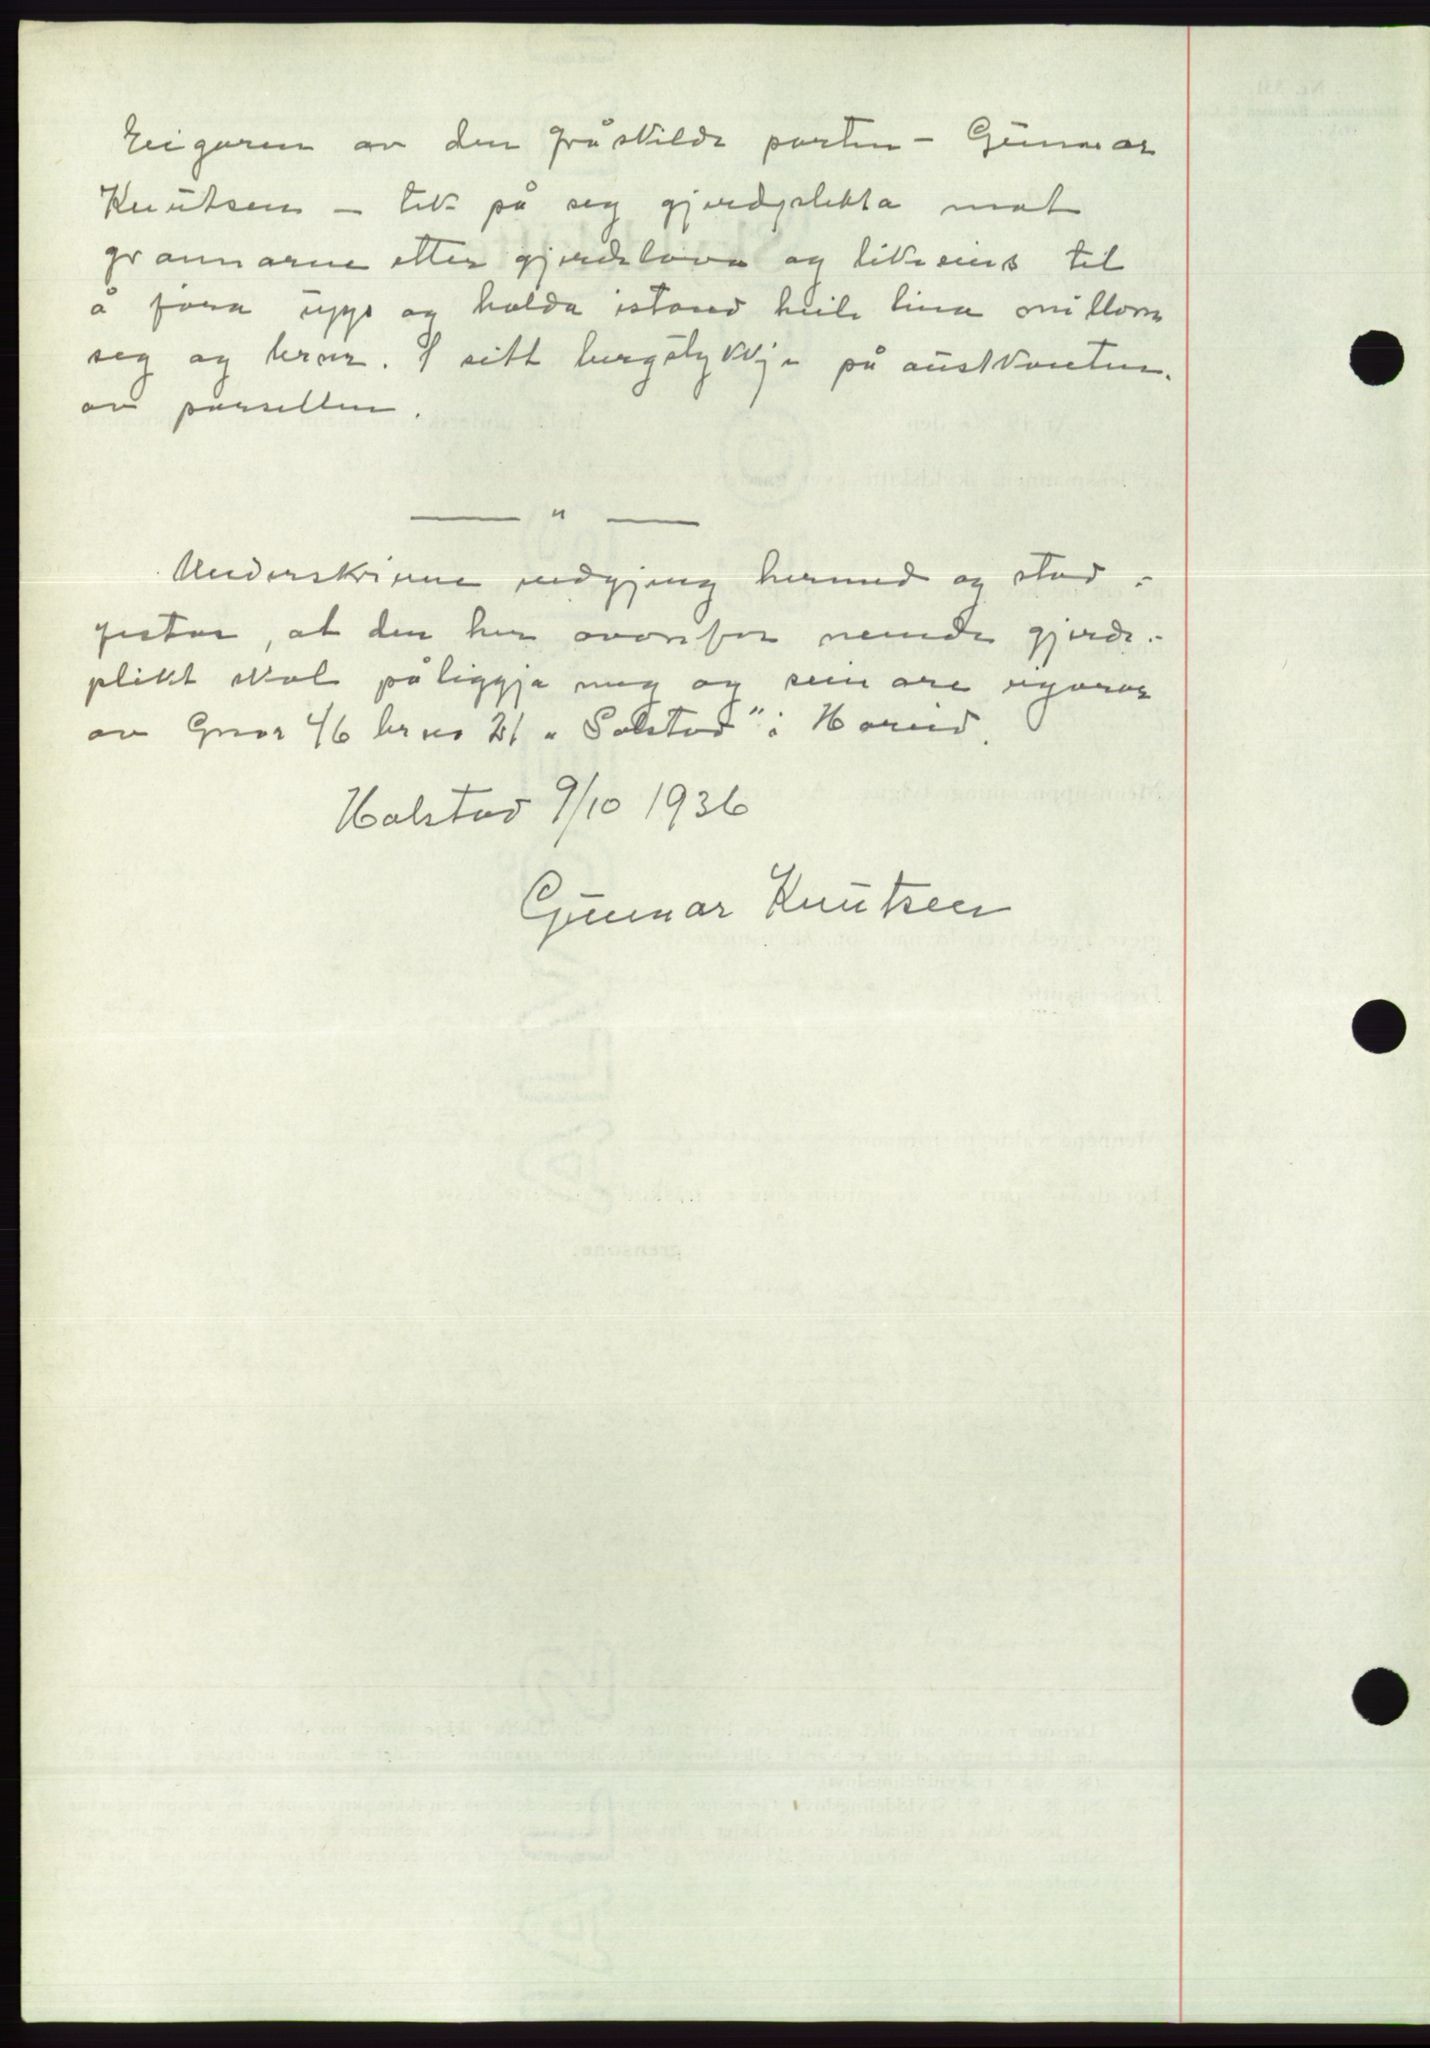 Eigaren av den fråskilde parten - Gunnar
Knutsen - tek på seg gjerdeplikta mot
grannarne etter gjerdelova og likeeins til
å føra upp og halda istand heile lina millom
seg og brnr. 1 sitt bergstykkje på austkanten
av parsellen.
— " —
Underskrivne vedgjeng hermed og stad-
festar, at den her ovanfor nemnde gjerde-
plikt skal påliggja meg og seinare eigarar
av Gnr 46 brno 21 „Solstad" i Hareid.
Holstad 9/10 1936
Gunnar Knutsen